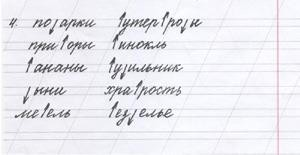 4. подарки бутерброды
приборы бинокль
бананы будильник
дыни храбрость
мебель безделье